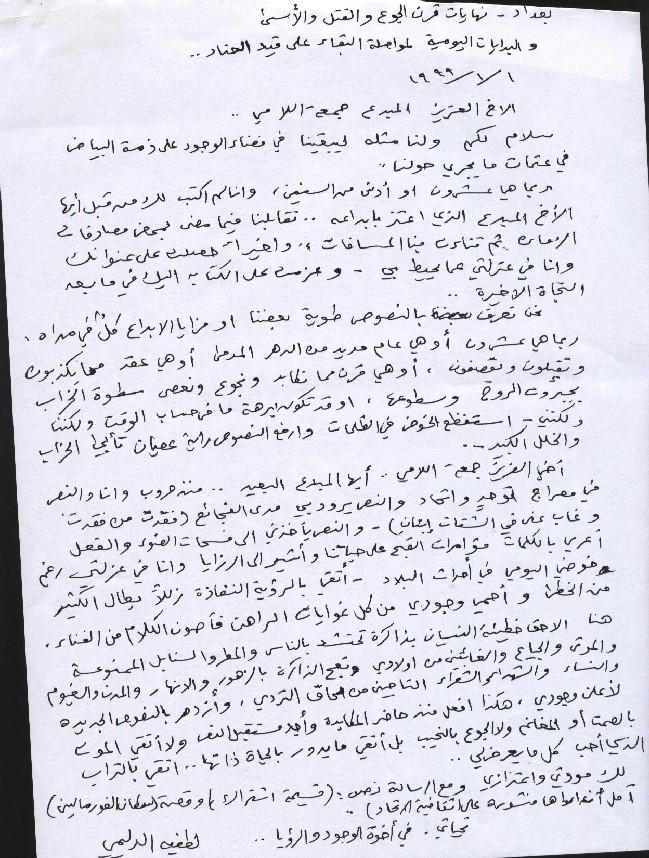 بغداد - نهايات قرن الجوع والقتل والأسى
والبدايات اليومية لمواصلة البقاء على قيد العناد ..
١٩٩٩/١/١
الاخ العزيز المبدع جمعة اللامي ..
سلام لكم ولنا مثله ليبقينا في فضاء الوجود على ذمة البياض
في عتمات ما يجري حولنا ..
ربما هي عشرون او أدنى من السنين ، وانا لم اكتب لك من قبل أيها
الأخ المبدع الذي اعتز بابداعه .. تقابلنا فيما مضى بمحض مصادفات
الزمان ثم تناءت بنا المسافات .. واخيرا حصلت على عنوانك
وانا في عزلتي عما يحيط بي - وعزمت على الكتابة اليك في ما يشبه
النجاة الاخيرة ..
نحن نعرف بالنصوص طوية بعضنا او مزايا الابداع كلٌ في مداه ،
ربما هي عشرون أو هي عام مديد من الدهر أو هي عقد مما يكذبون
ويقتلون ويقصفون ، أو هي قرن مما نكابد ونجوع ونعصى سطوة الخراب
بجبروت الروح وسطوعها ، او قد تكون برهة ما في حساب الوقت ولكننا
ولكنني - استفظع الخوض في الظلمات وارفع النصوص راية عصيان الخراب
والخلل الكبير ..
أخي العزيز جمعة اللامي .. أيها المبدع البعيد .. منذ حروب وانا والنص
في معراج توحدٍ واتحاد والنص يرود بي مدى الفجائع (فقدت من فقدت
وغاب عني في الشتات إبنان) - والنص يأخذني الى فسحات الضوء والفعل
أعري بالكلمات مؤامرات القبح على حياتنا وأشير الى الرزايا وانا في عزلتي رغم
خوضي اليومي في أحداث البلاد - أتقي بالرؤية النفاذة زللاً يطال الكثير
من الخطا و أحمي وجودي من كل غوايات الراهن فأصون الكلام من الفناء .
هنا الاحق خطيئة النسيان بذاكرة تحتشد بالناس والمطر والسنابل الممنوعة
والموتى والجياع والغائبين من اولادي وتعج الذاكرة بالزهور والانهار والمدن والغيوم
والنساء والشهداء والشعراء الناجين من محاق التردي ، وأزدهر بالنصوص الجديدة
لأعلن وجودي ، هكذا افعل منذ حاضر المكابدة وأجد مستقبل النص ولا أتقي الموت
بالصمت أو المغانم ولا الجوع بالنحيب بل أتقي ما يدور بالحياة ذاتها .. اتقي بالتراب
الذي أحب كل ما يعرض لي ..
لك مودتي واعتزازي ومع الرسالة نص : (قسيمة اشتراك) وقصة
آمل أن اراها منشورة على ثقافية الاتحاد) ..
تحياتي . في أخوة الوجود والرؤيا ..
لطفية الدليمي